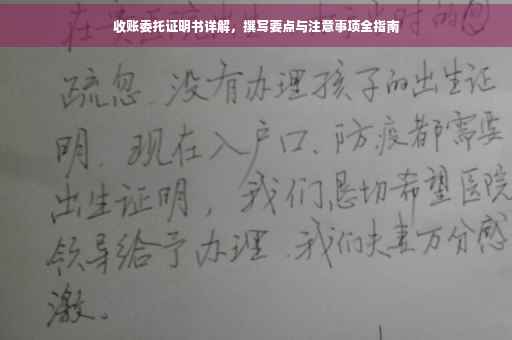 收账委托证明书详解，撰写要点与注意事项全指南
疏忽、没有办理孩子的出生证
明、现在入户口、防疫都需要
出生证明，我们恳切希望医院
领导给予办理、我们夫妻万分感
激。